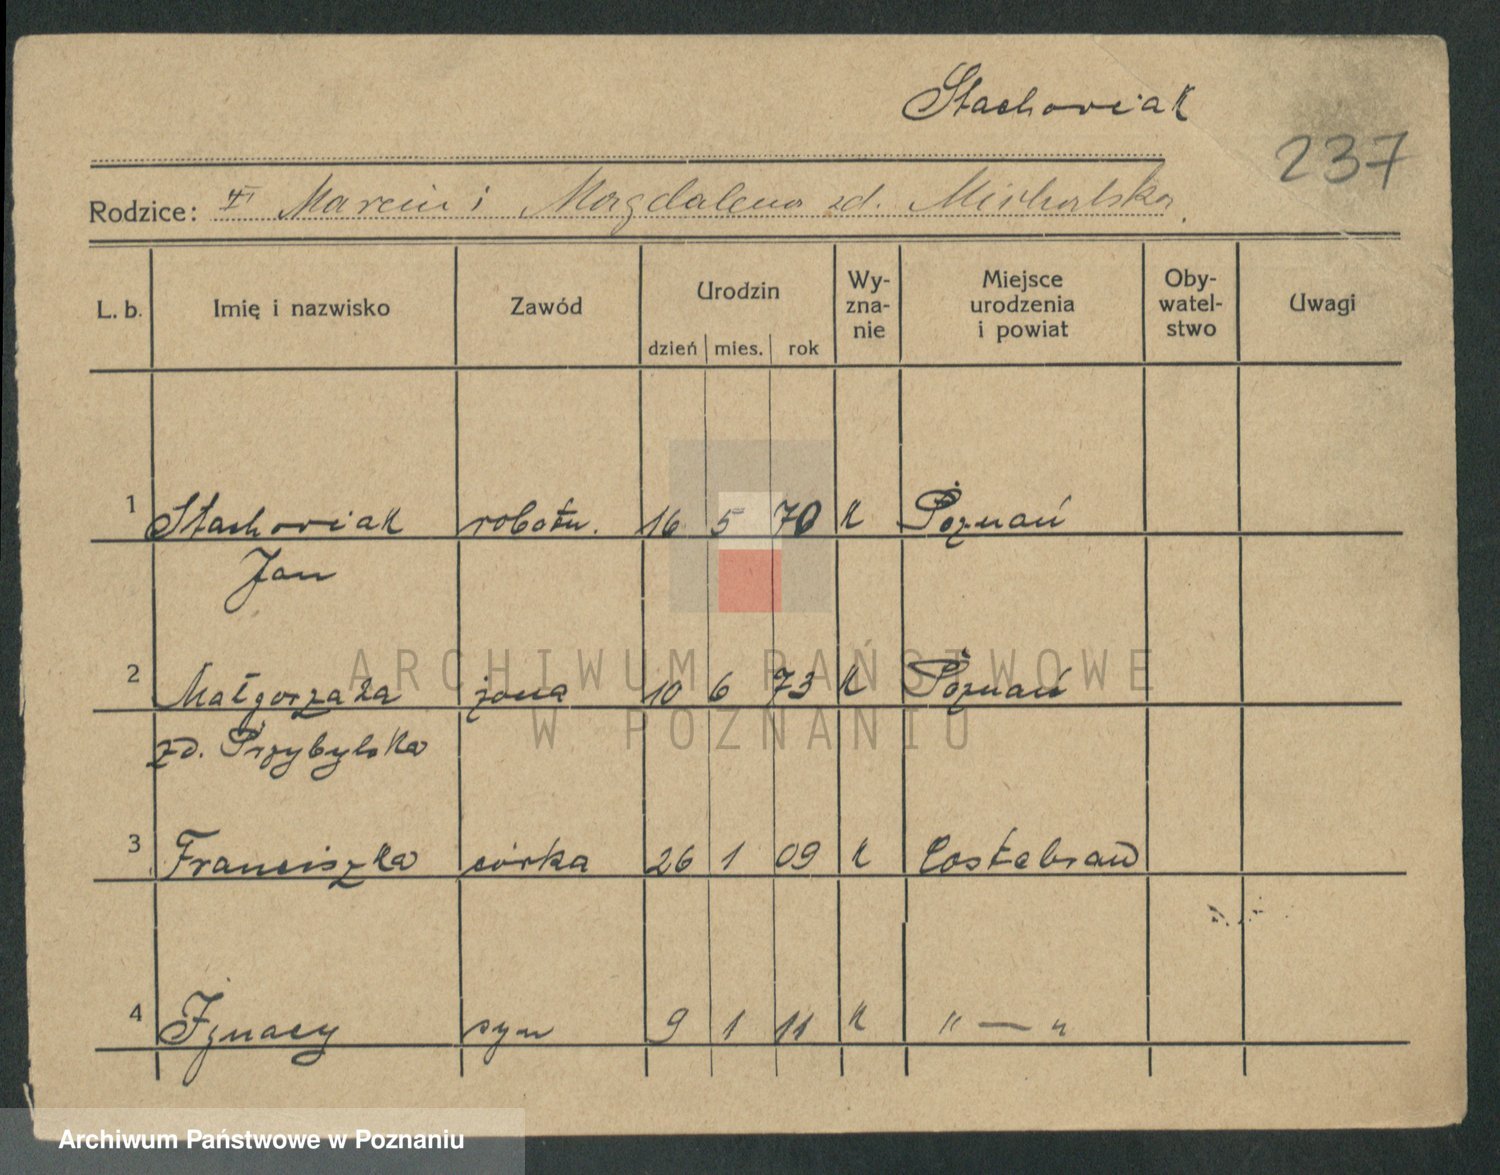 Stachowiak
237
Rodzice: Marcin i Magdalena zd. Michalska.
L. b. Imię i nazwisko Zawód Urodzin dzień mies. rok Wy-zna-nie Miejsce urodzenia i powiat Oby-watel-stwo Uwagi
1 Stachowiak robotn. 16 5 70 K Poznań
Jan
2 Małgorzata żona 10 6 73 K Poznań
zd. Przybylska
3 Franciszka córka 26 1 09 K Costebrau
4 Ignacy syn 9 1 11 K " — "
ARCHIWUM PAŃSTWOWE
W POZNANIU
Archiwum Państwowe w Poznaniu